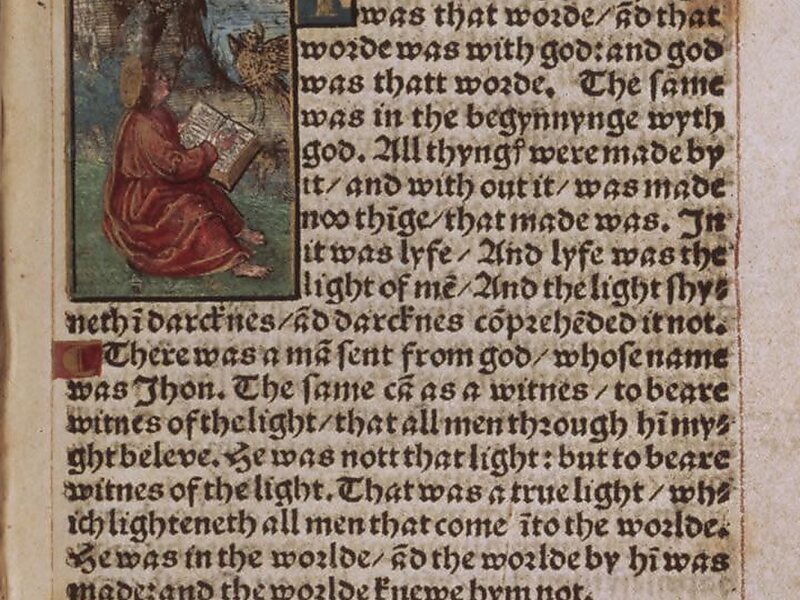 I
was that worde/ ād that
worde was with god: and god
was thatt worde. The same
was in the begynnynge wyth
god. All thyngs were made by
it/ and with out it/ was made
noo thīge/ that made was. In
it was lyfe/ And lyfe was the
light of mē/ And the light shy⸗
neth ī darcknes/ ād darcknes cōprehēded it not.
There was a mā sent from god/ whose name
was Jhon. The same cā as a witnes/ to beare
witnes of the light/ that all men through hī my⸗
ght beleve. He was nott that light: but to beare
witnes of the light. That was a true light/ wh⸗
ich lighteneth all men that come īto the worlde.
He was in the worlde/ ād the worlde by hī was
made: and the worlde knewe hym not.